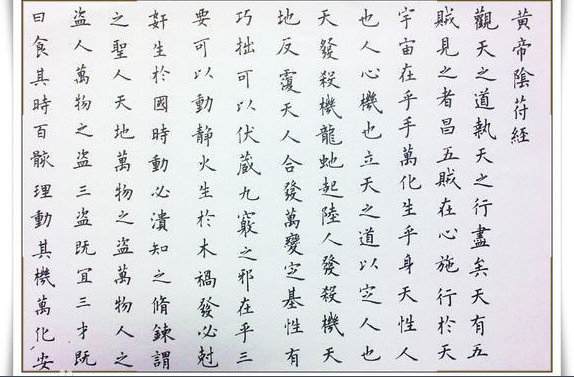 黃帝陰苻經
觀天之道執天之行盡矣天有五
賊見之者昌五賊在心施行於天
宇宙在乎手萬化生乎身天性人
也人心機也立天之道以定人也
天發殺機龍虵起陸人發殺機天
地反覆天人合發萬變定基性有
巧拙可以伏藏九竅之邪在乎三
要可以動靜火生於木禍發必尅
奸生於國時動必潰知之脩鍊謂
之聖人天地萬物之盜萬物人之
盜人萬物之盜三盜既宜三才既
曰食其時百骸理動其機萬化安